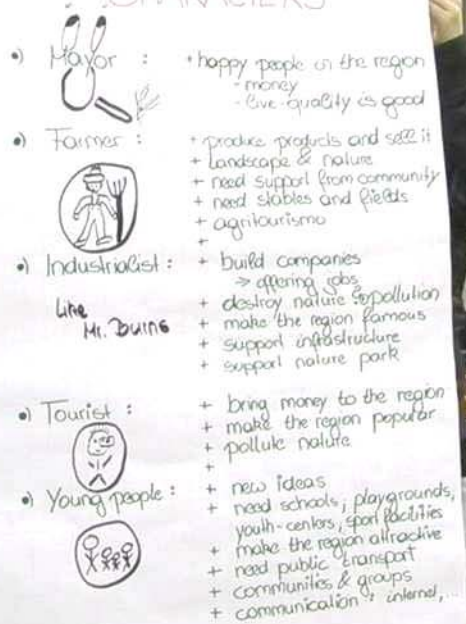 CHARACTERS
•) Mayor : + happy people in the region
- money
- live-quality is good
•) Farmer : + produce products and sell it
+ landscape & nature
+ need support from community
+ need stables and fields
+ agritourismo
+
•) Industrialist : + build companies
→ offering jobs
+ destroy nature → pollution
Like + make the region famous
Mr. Burns + support infrastructure
+ support nature park
•) Tourist : + bring money to the region
+ make the region popular
+ pollute nature
+
•) Young people : + new ideas
+ need schools, playgrounds,
youth-centers, sport facilities
+ make the region attractive
+ need public transport
+ communities & groups
+ communication : internet,...